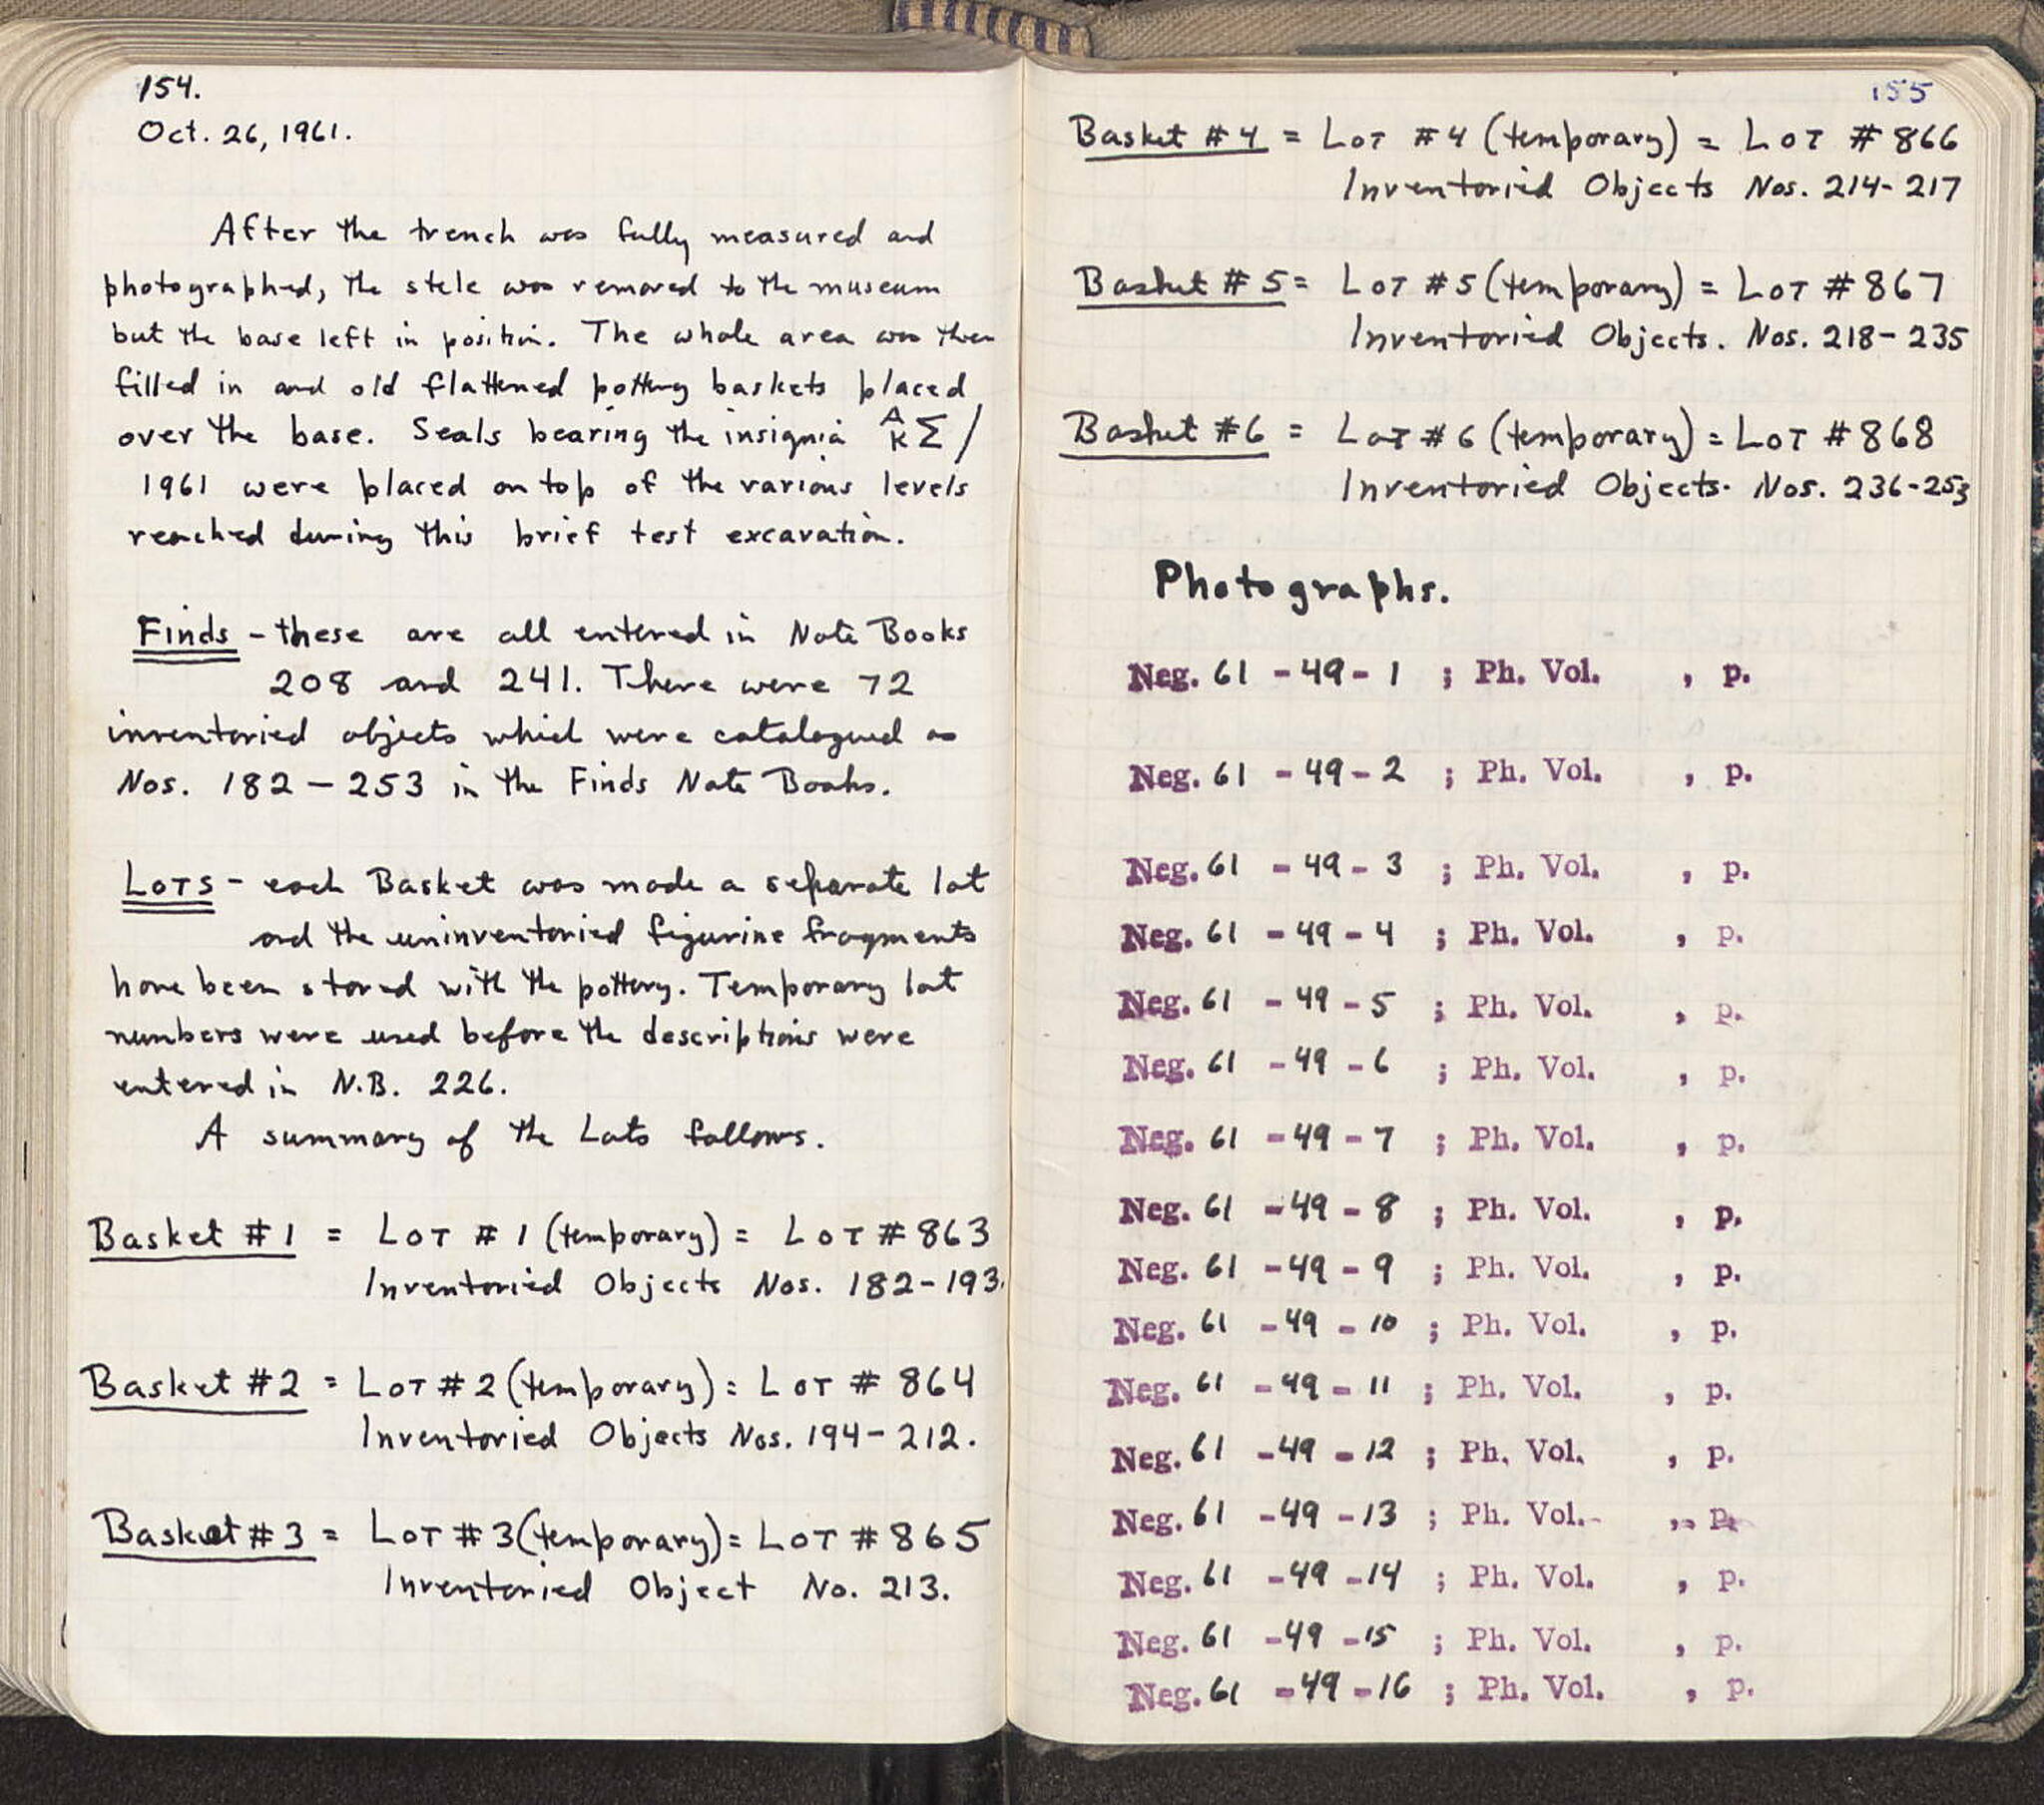 154.
Oct. 26, 1961.
After the trench was fully measured and
photographed, the stele was removed to the museum
but the base left in position. The whole area was then
filled in and old flattened pottery baskets placed
over the base. Seals bearing the insignia AKΣ/
1961 were placed on top of the various levels
reached during this brief test excavation.
Finds - these are all entered in Note Books
208 and 241. There were 72
inventoried objects which were catalogued as
Nos. 182 - 253 in the Finds Note Books.
Lots - each Basket was made a separate lot
and the uninventoried figurine fragments
have been stored with the pottery. Temporary lot
numbers were used before the descriptions were
entered in N.B. 226.
A summary of the Lots follows.
Basket #1 = Lot #1 (temporary) = Lot #863
Inventoried Objects Nos. 182-193.
Basket #2 = Lot #2 (temporary) = Lot #864
Inventoried Objects Nos. 194-212.
Basket #3 = Lot #3 (temporary) = Lot #865
Inventoried Object No. 213.
155
Basket #4 = Lot #4 (temporary) = Lot #866
Inventoried Objects Nos. 214-217
Basket #5 = Lot #5 (temporary) = Lot #867
Inventoried Objects. Nos. 218-235
Basket #6 = Lot #6 (temporary) = Lot #868
Inventoried Objects. Nos. 236-253
Photographs.
Neg. 61 - 49 - 1 ; Ph. Vol. , p.
Neg. 61 - 49 - 2 ; Ph. Vol. , p.
Neg. 61 - 49 - 3 ; Ph. Vol. , p.
Neg. 61 - 49 - 4 ; Ph. Vol. , p.
Neg. 61 - 49 - 5 ; Ph. Vol. , p.
Neg. 61 - 49 - 6 ; Ph. Vol. , p.
Neg. 61 - 49 - 7 ; Ph. Vol. , p.
Neg. 61 - 49 - 8 ; Ph. Vol. , p.
Neg. 61 - 49 - 9 ; Ph. Vol. , p.
Neg. 61 - 49 - 10 ; Ph. Vol. , p.
Neg. 61 - 49 - 11 ; Ph. Vol. , p.
Neg. 61 - 49 - 12 ; Ph. Vol. , p.
Neg. 61 - 49 - 13 ; Ph. Vol. , p.
Neg. 61 - 49 - 14 ; Ph. Vol. , p.
Neg. 61 - 49 - 15 ; Ph. Vol. , p.
Neg. 61 - 49 - 16 ; Ph. Vol. , p.